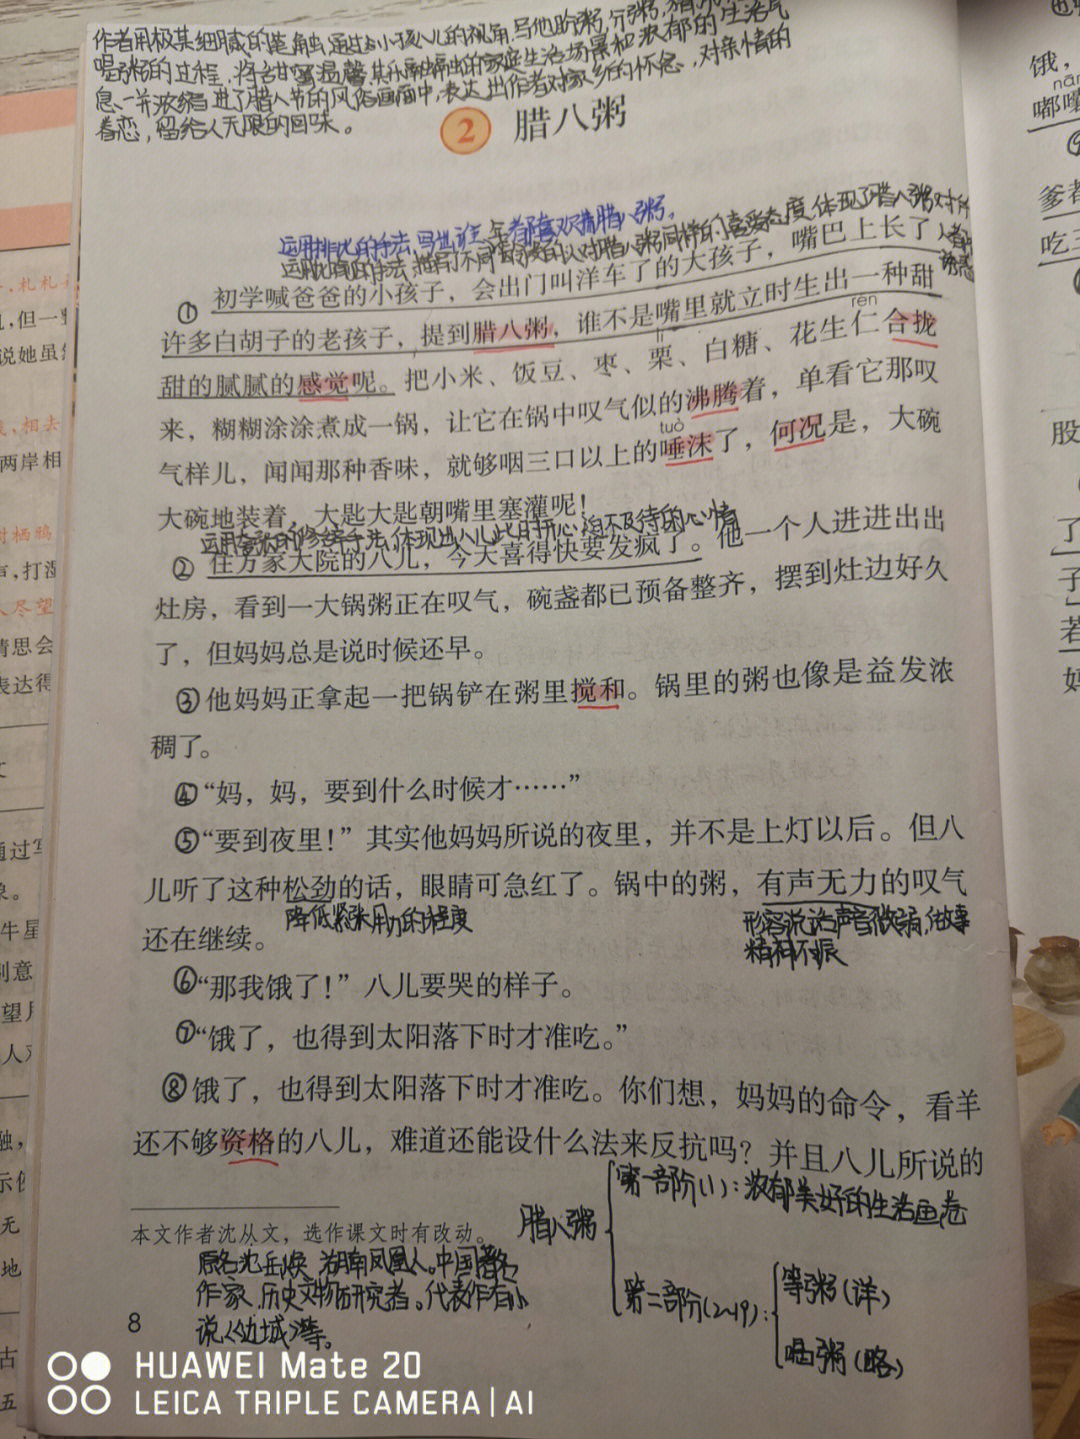 作者用极其细腻的笔触,通过小孩八儿的视角,写他盼粥、分粥、
喝粥的过程,将甜蜜温馨、其乐融融的家庭生活场景和浓郁的生活气
息,一并浓缩进了腊八节的风俗画面中,表达出作者对家乡的怀念,对亲情的
眷恋,留给人无限的回味。
2 腊八粥
运用排比的手法,写出
年 都喜欢 腊八粥。
的手法,描写了不同 的人对腊八粥同样的喜爱态度,体现了腊八粥对所
① 初学喊爸爸的小孩子,会出门叫洋车了的大孩子,嘴巴上长了
许多白胡子的老孩子,提到腊八粥,谁不是嘴里就立时生出一种甜
lì rén
甜的腻腻的感觉呢。把小米、饭豆、枣、栗、白糖、花生仁合拢
来,糊糊涂涂煮成一锅,让它在锅中叹气似的沸腾着,单看它那叹
tuò
气样儿,闻闻那种香味,就够咽三口以上的唾沫了,何况是,大碗
大碗地装着,大匙大匙朝嘴里塞灌呢!
运用夸张的修辞手法,体现出八儿此时开心、迫不及待的心情
② 住方家大院的八儿,今天喜得快要发疯了。他一个人进进出出
灶房,看到一大锅粥正在叹气,碗盏都已预备整齐,摆到灶边好久
了,但妈妈总是说时候还早。
③他妈妈正拿起一把锅铲在粥里搅和。锅里的粥也像是益发浓
稠了。
④“妈,妈,要到什么时候才……”
⑤“要到夜里!”其实他妈妈所说的夜里,并不是上灯以后。但八
儿听了这种松劲的话,眼睛可急红了。锅中的粥,有声无力的叹气
降低紧张用力的程度
形容说话声音微弱,做事
还在继续。
精神不振
⑥“那我饿了!”八儿要哭的样子。
⑦“饿了,也得到太阳落下时才准吃。”
⑧饿了,也得到太阳落下时才准吃。你们想,妈妈的命令,看羊
还不够资格的八儿,难道还能设什么法来反抗吗?并且八儿所说的
本文作者沈从文,选作课文时有改动。
腊八粥
第一部分(1):浓郁美好的生活画卷
第二部分(2~19):
等粥(详)
喝粥(略)
原名沈岳焕,湖南凤凰人。中国著名
作家、历史文物研究者。代表作有小
说《边城》等。
8
HUAWEI Mate 20
LEICA TRIPLE CAMERA | AI